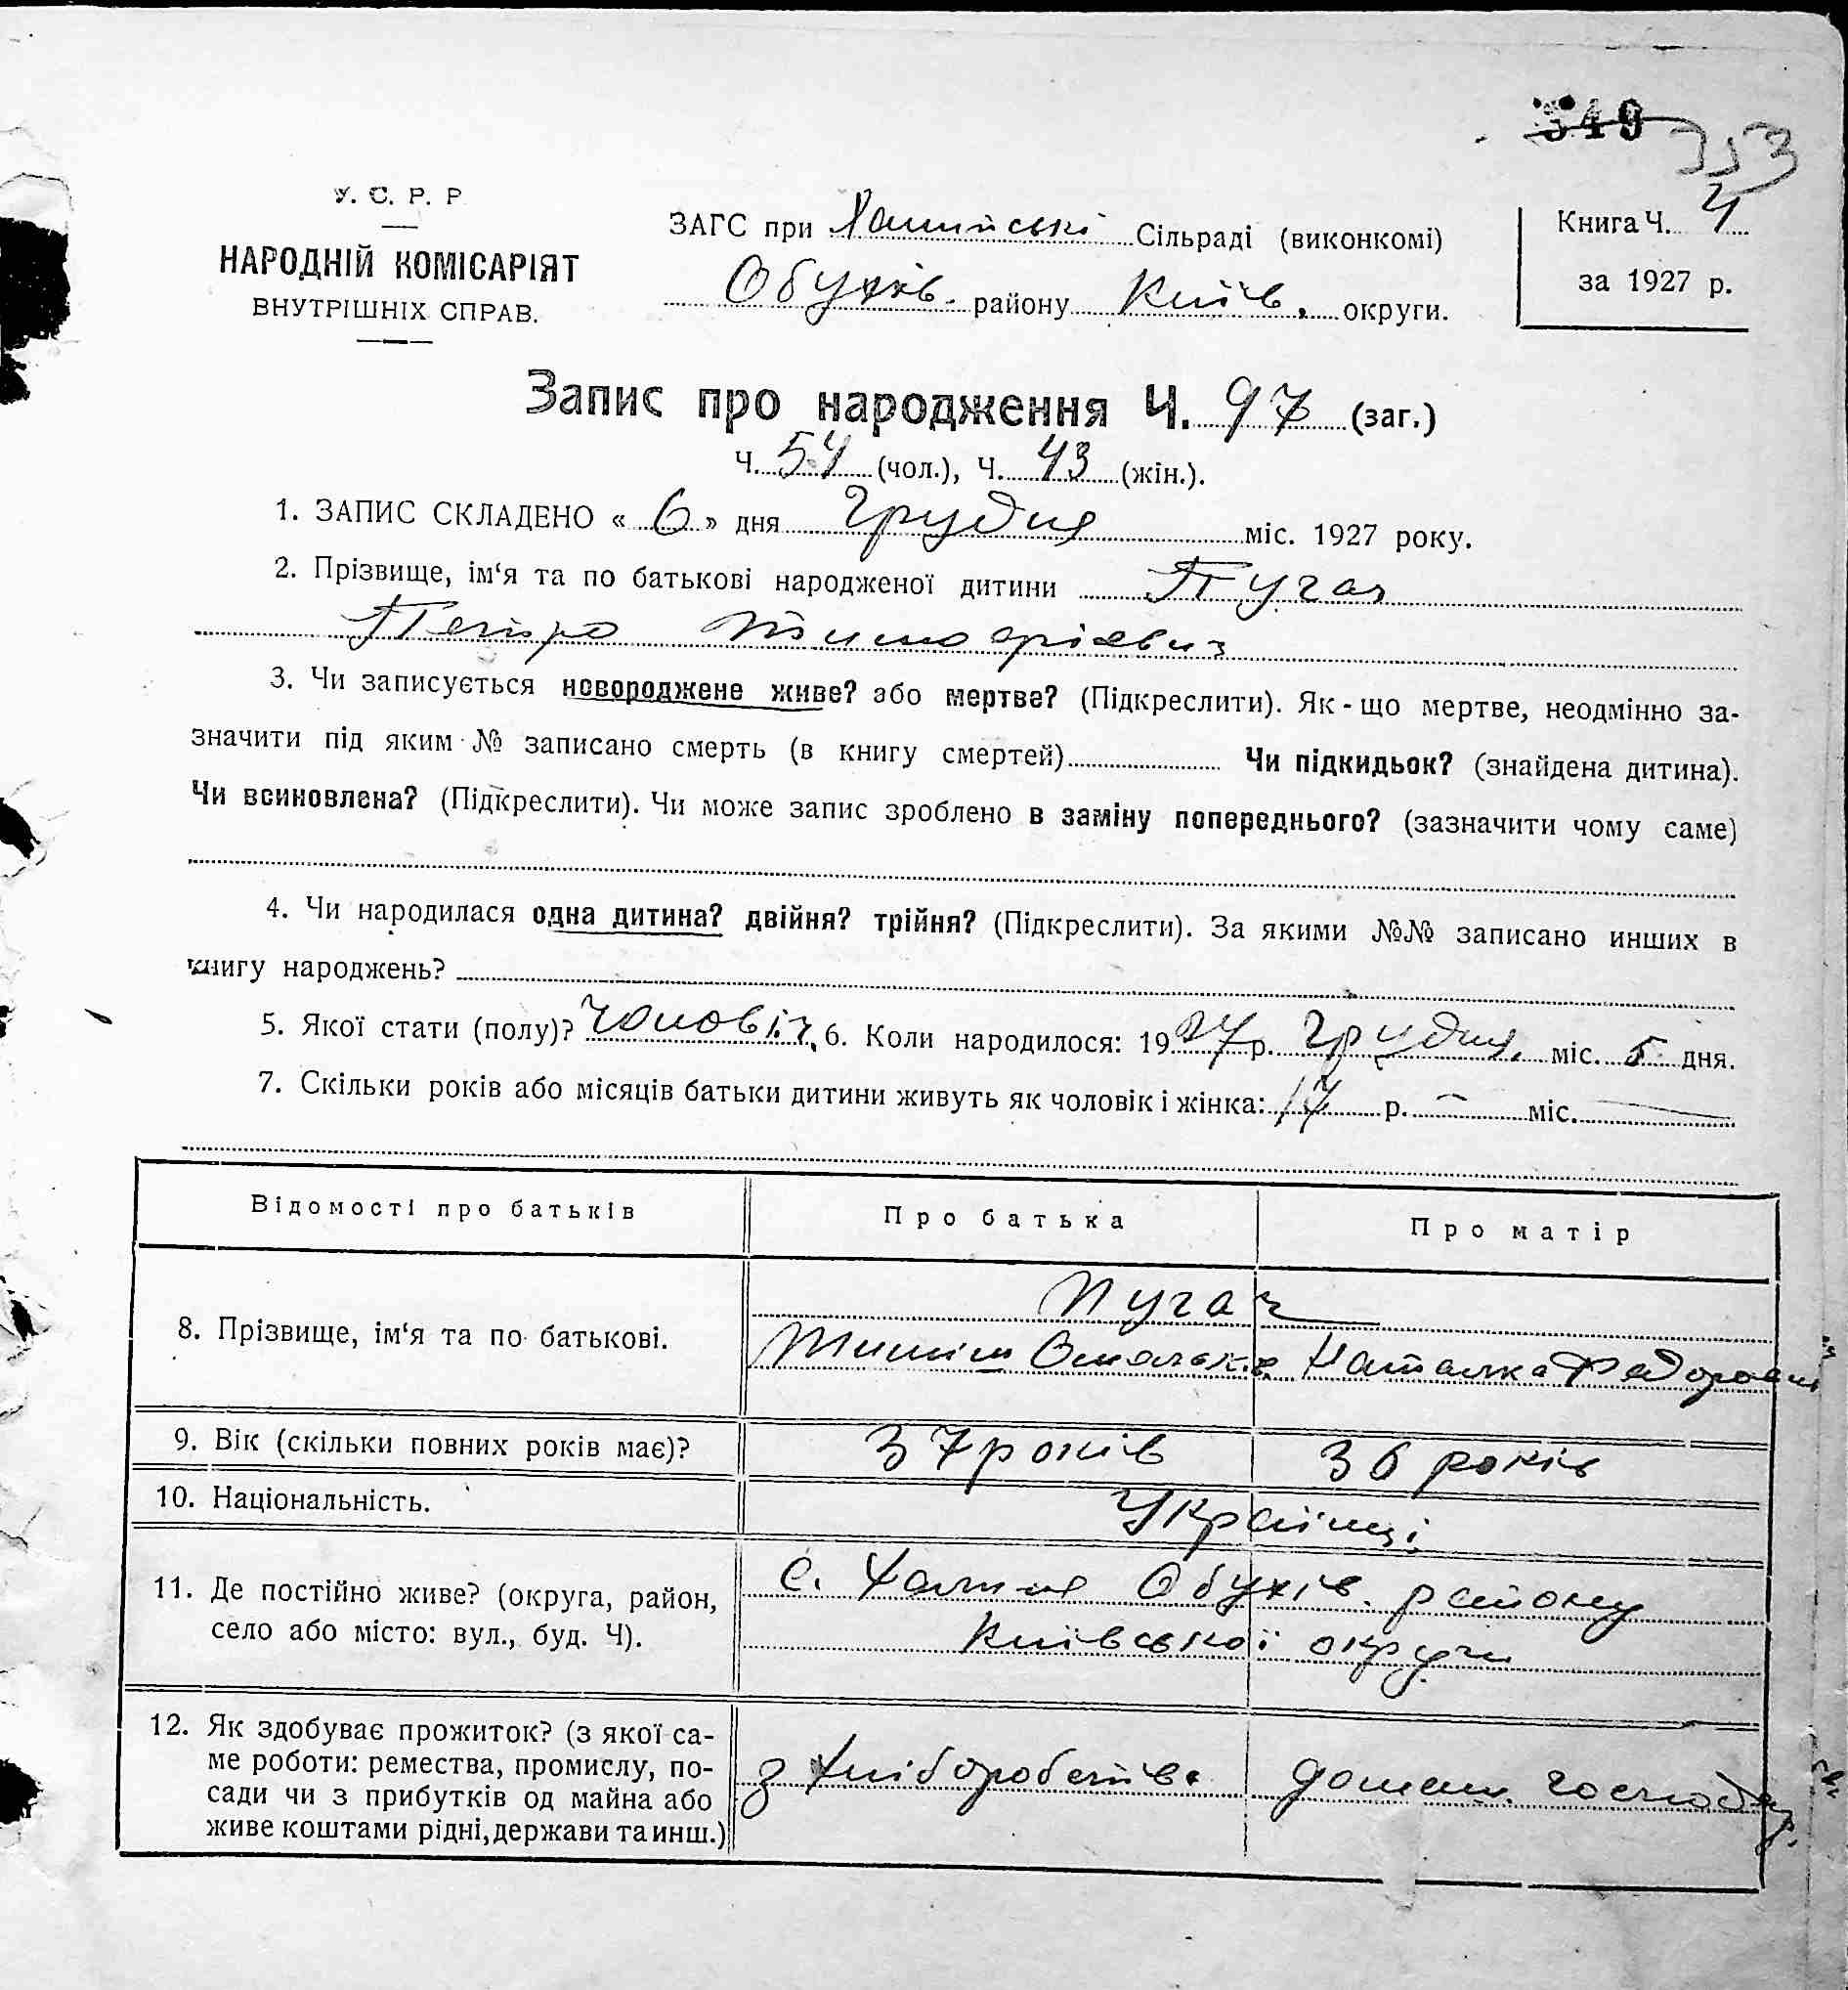 349 353
У. С. Р. Р
НАРОДНІЙ КОМІСАРІЯТ
ВНУТРІШНІХ СПРАВ.
ЗАГС при Халипській Сільраді (виконкомі)
Обухів. району Київ. округи.
Книга Ч. 4
за 1927 р.
Запис про народження Ч. 97 (заг.)
Ч. 54 (чол.), Ч. 43 (жін.).
1. ЗАПИС СКЛАДЕНО « 6 » дня Грудня міс. 1927 року.
2. Прізвище, ім‘я та по батькові народженої дитини Пугач
Петро
3. Чи записується новороджене живе? або мертве? (Підкреслити). Як - що мертве, неодмінно за-
значити під яким № записано смерть (в книгу смертей) Чи підкидьок? (знайдена дитина).
Чи всиновлена? (Підкреслити). Чи може запис зроблено в заміну попереднього? (зазначити чому саме)
4. Чи народилася одна дитина? двійня? трійня? (Підкреслити). За якими №№ записано инших в
книгу народжень?
5. Якої стати (полу)? чоловіч. 6. Коли народилося: 1927 р. Грудня. міс. 5 дня.
7. Скільки років або місяців батьки дитини живуть як чоловік і жінка: 17 р. — міс.
Відомості про батьків Про батька Про матір
8. Прізвище, ім‘я та по батькові. Пугач
Тиміш Омельків. Наталка Федоровн
9. Вік (скільки повних років має)? 37 років 36 років
10. Національність. Українці
11. Де постійно живе? (округа, район,
село або місто: вул., буд. Ч).
с. Халипя Обухів. району
Київської округи
12. Як здобуває прожиток? (з якої са-
ме роботи: ремества, промислу, по-
сади чи з прибутків од майна або
живе коштами рідні, держави та инш.)
з хліборобств. домаш. господар.